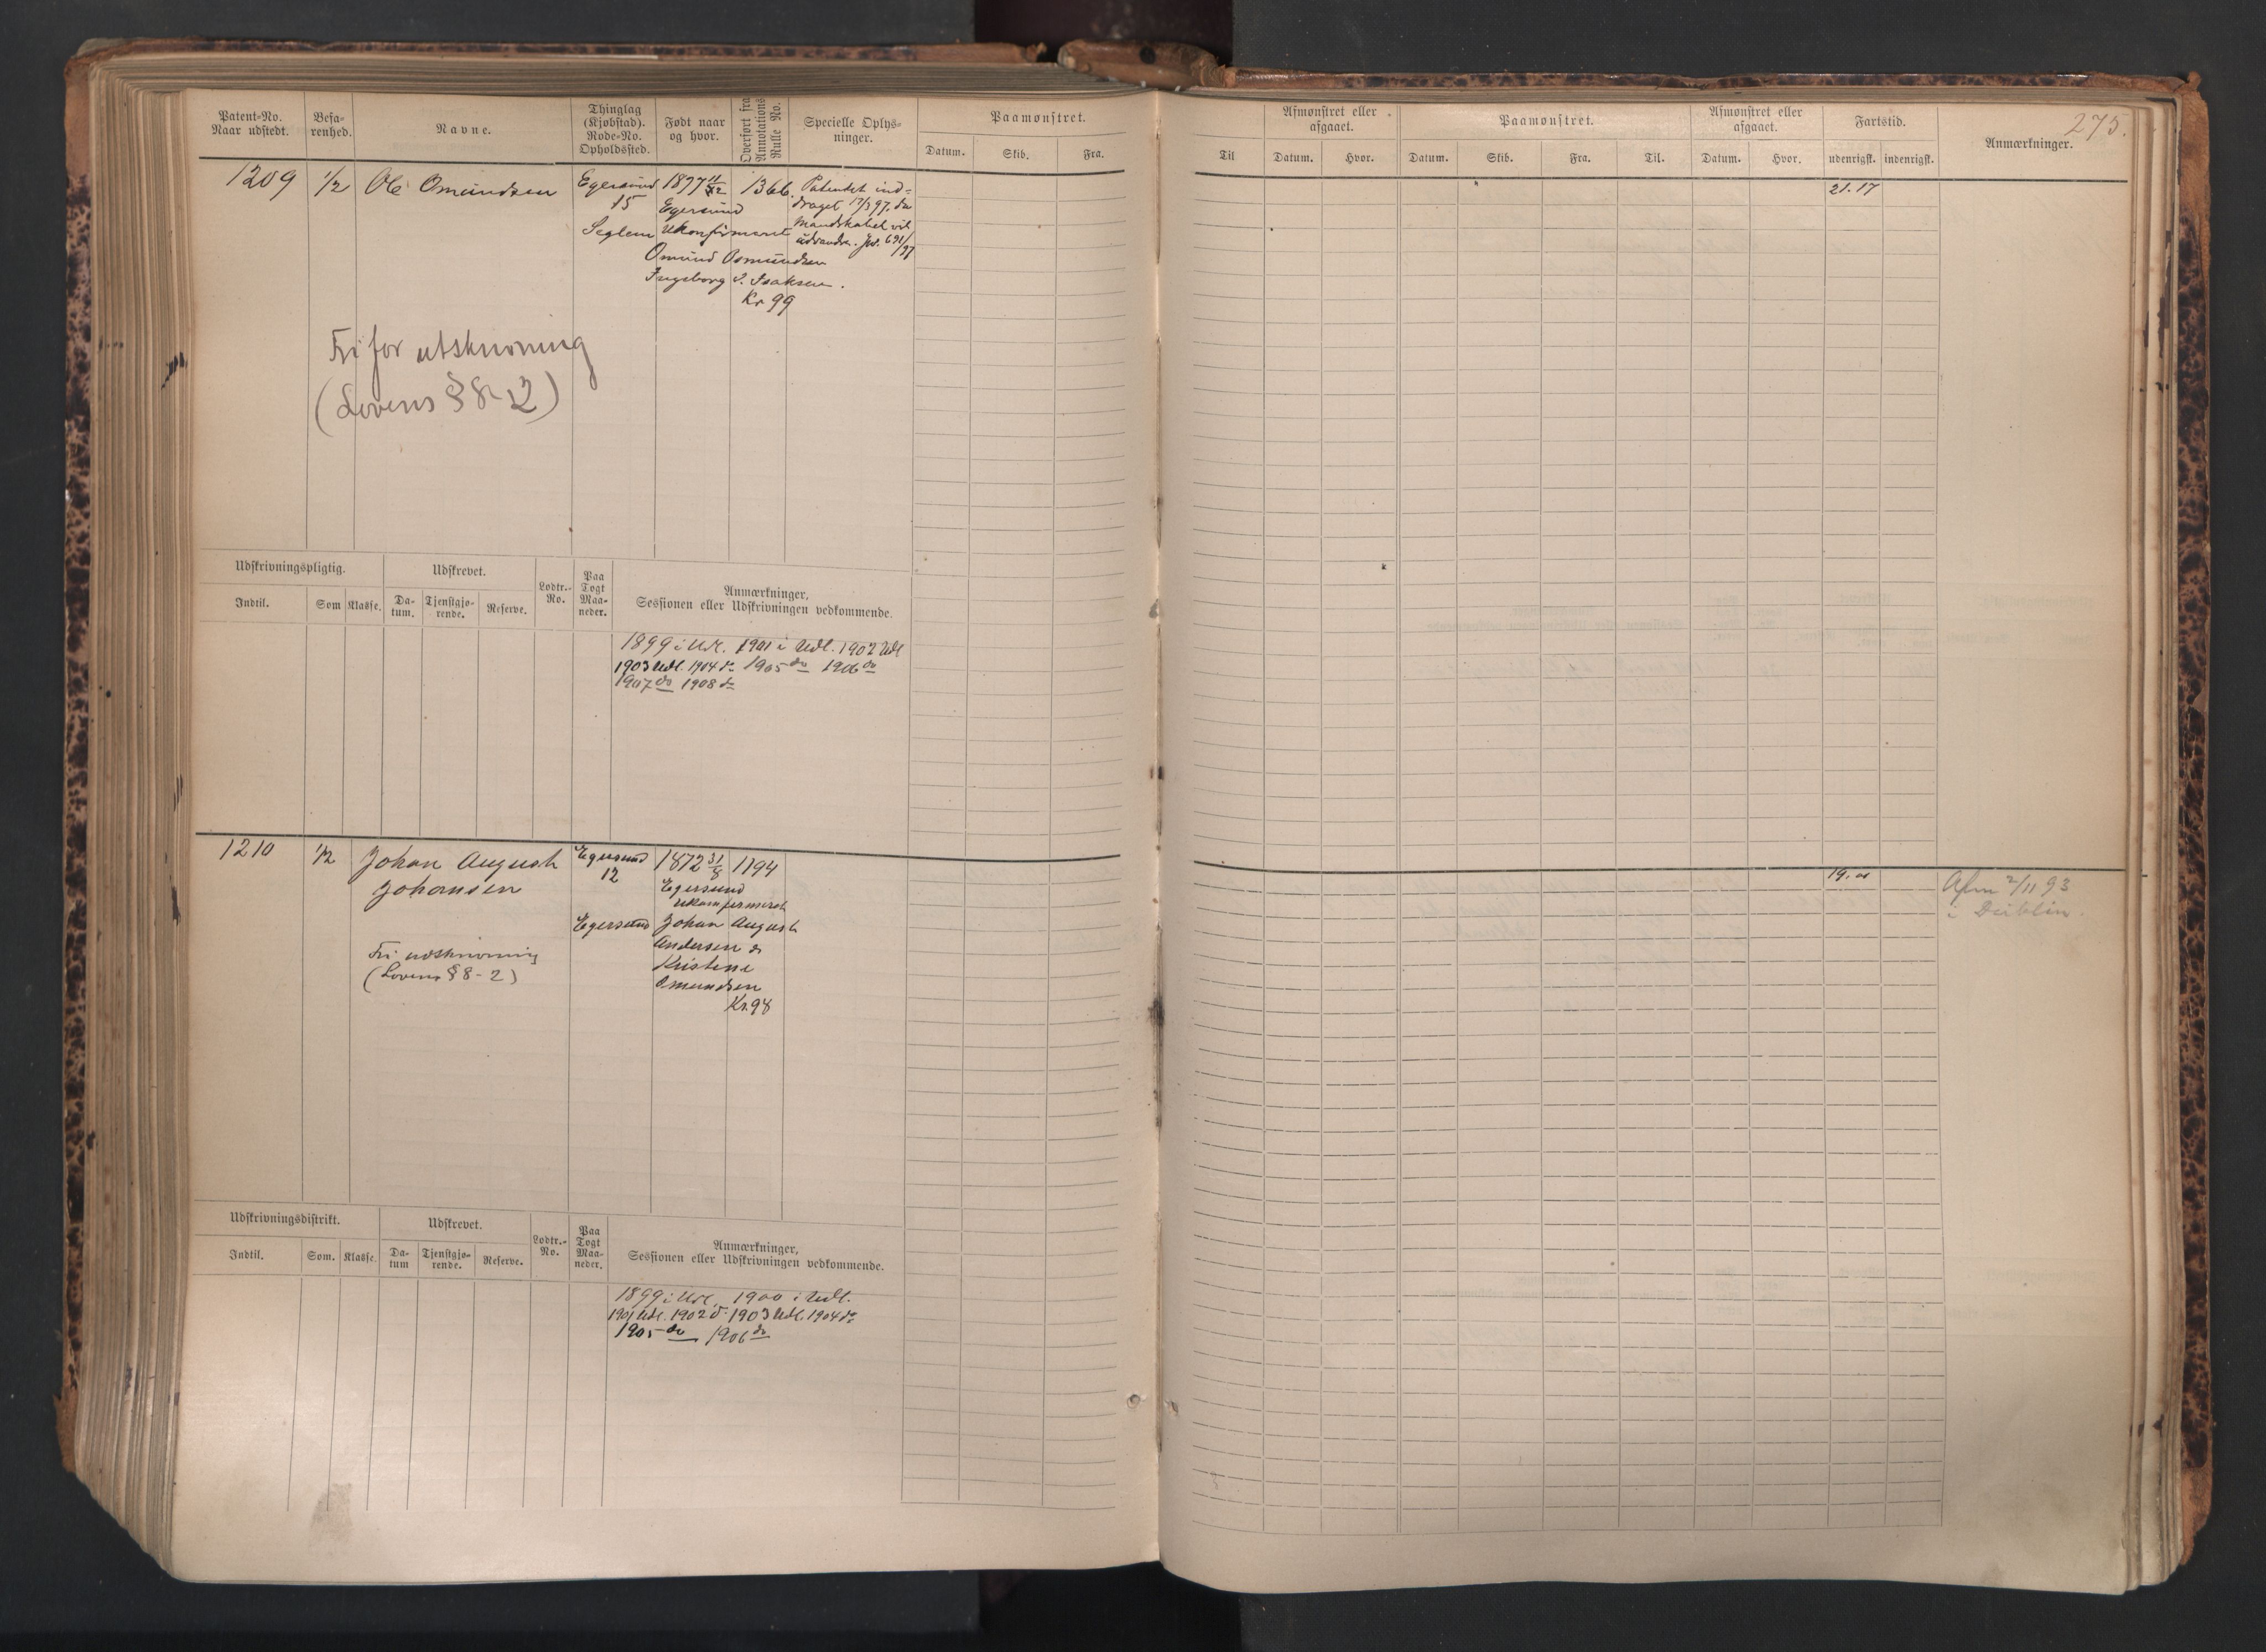 275.
Patent-No.
Naar udstedt.
Befa-
renhed.
Navne.
Thinglag
(Kjøbstad).
Rode-No.
Opholdssted.
Født naar
og hvor.
Overført fra
Annotations
Rulle No.
Specielle Oplys-
ninger.
Paamønstret.
Datum. Skib. Fra.
Til
Afmønstret eller
afgaaet.
Datum. Hvor.
Paamønstret.
Datum. Skib. Fra. Til.
Afmønstret eller
afgaaet.
Datum. Hvor.
Fartstid.
udenrigst. indenrigst.
Anmærkninger.
1209 1/2 Ole Omundsen
Egersund
15
Seglem
1877
Egersund
Ukonfirmeret
Omund Osmundsen
Ingeborg S. Isaksen.
Kr 99
1366.
Patentet ind-
draget 17/3 97, da
Mandskabet vil
udvandre. Jr. 691/97
21.17
Fri for utskrivning
(Lovens § 8-2)
Udskrivningspligtig.
Indtil. Som Klasse.
Udskrevet.
Da-
tum.
Tjenstgjø-
rende.
Reserve.
Lodtr.-
No.
Paa
Togt
Maa-
neder.
Anmærkninger,
Sessionen eller Udskrivningen vedkommende.
1899 i Udl. 1901 i Udl. 1902 Udl
1903 Udl. 1904 do 1905 do 1906 do
1907 do 1908 do
1210 1/2 Johan August
Johansen
Egersund
12
Egersund
1872 31/8
Egersund
ukonfirmeret
Johan August
Andersen &
Kristine
Omundsen
Kr. 98
1194
19.
Afm 2/11 93
i Dublin.
Fri utskrivning
(Lovens § 8-2)
Udskrivningsdistrikt.
Indtil. Som. Klasse.
Udskrevet.
Da-
tum
Tjenstgjø-
rende.
Reserve.
Lodtr.-
No.
Paa
Togt
Maa-
neder.
Anmærkninger,
Sessionen eller Udskrivningen vedkommende.
1899 i Udl. 1900 i Udl.
1901 Udl. 1902 do 1903 Udl. 1904 do
1905 do 1906 do